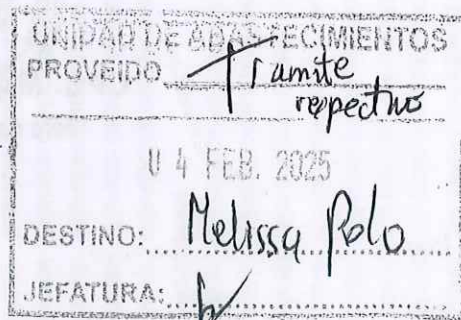 UNIDAD DE ABASTECIMIENTOS
PROVEIDO Tramite
respectivo
04 FEB. 2025
DESTINO: Melissa Polo
JEFATURA: